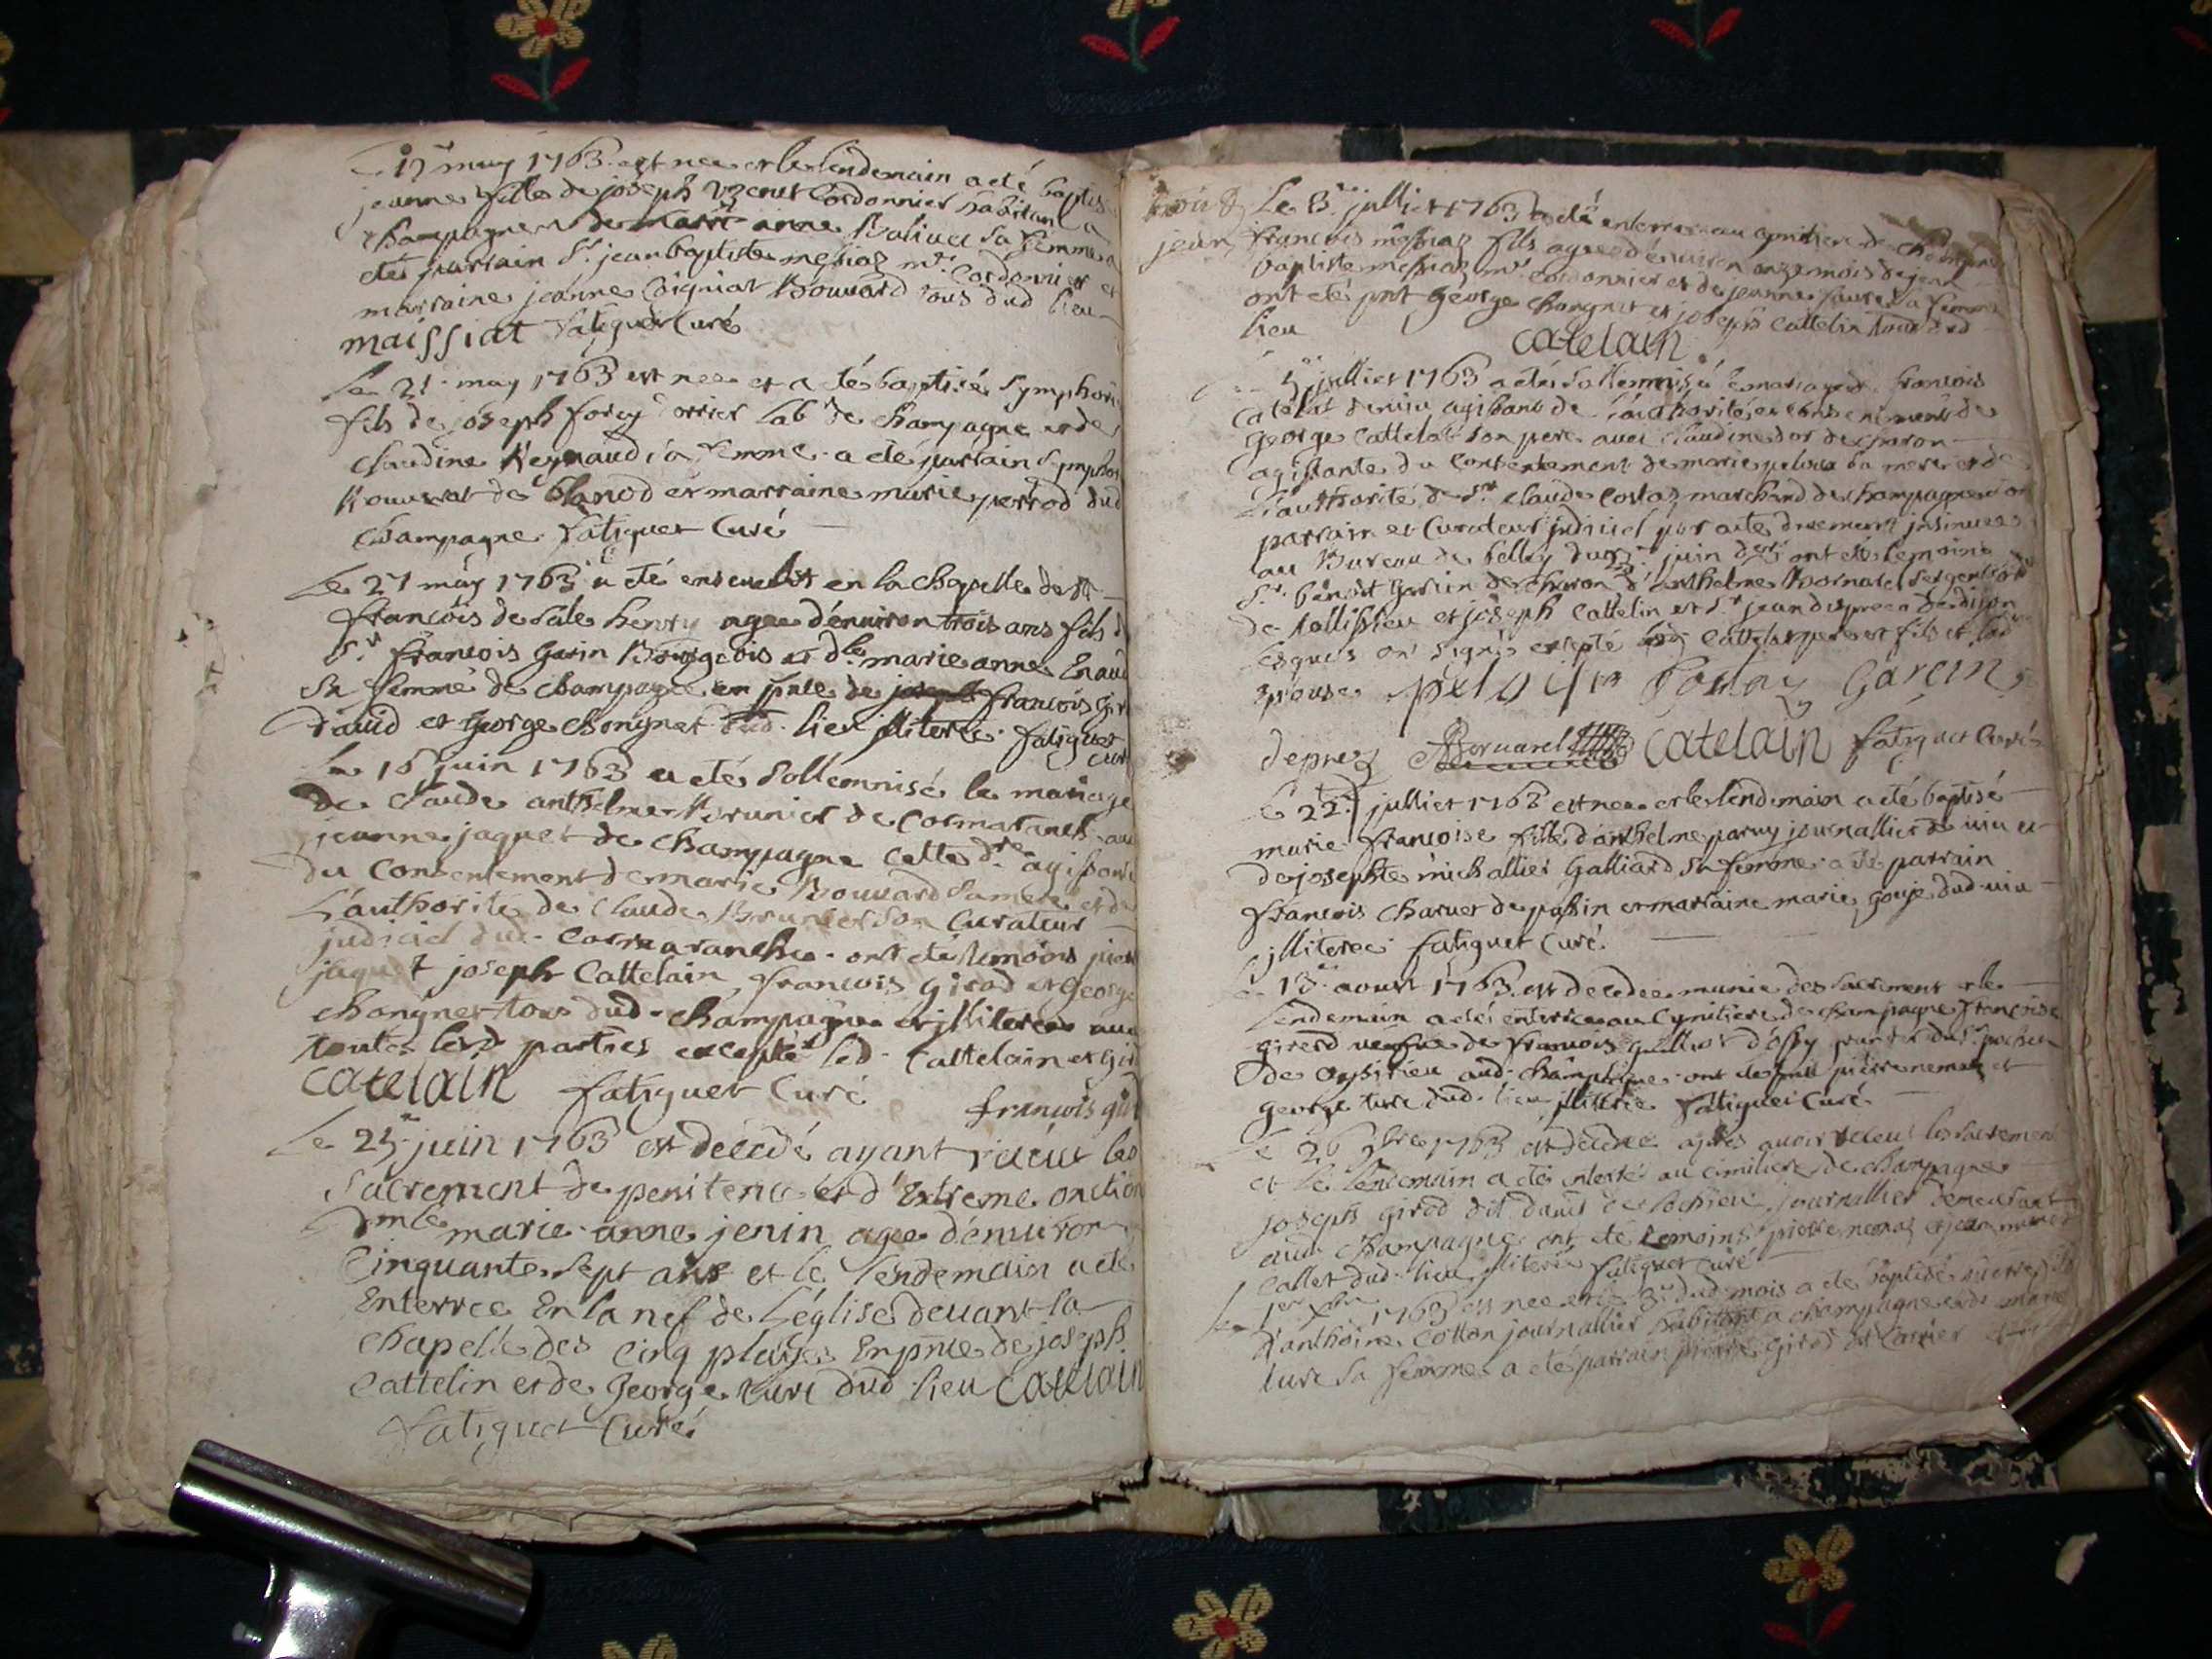 may 1763 est nee et le lendemain a eté baptisé
jeanne fille de joseph cordonnier habitant a
champagne et de anne sa femme a
eté parrain Sr. jean baptiste messiaz mre. Cordonnier et
marraine jeanne Coigniat Bouvard tous dud lieu
maissiat fatiguet Curé
Le 21. may 1763 est nee et a eté baptisé Symphori
fils de joseph forey lab. de champagne et de
claudine Reynaud sa femme. a eté parrain Symphor
de blanod et marraine marie perrod dud
Champagne. fatiguet Curé
Le 27 may 1763 a eté enseveli en la chapelle de St
francois de Sale henry agee d'environ trois ans fils d
Sr. francois Garin Bourgeois et dlle. marie anne
Sa femme de champagne en pnce de francois Gir
david et George Chongnet dud. lieu jlliteree. fatiguet
Curé
Le 16 juin 1763 a eté Sollemnisé le mariage
de Claude anthelme Brunier de Cormaranche avec
jeanne jaquet de Champagne cette dre. agissant
du Consentement de marie Bouvard Sa mere et de
L'authorite de Claude Brunier Son Curateur
judiciel dud. Cormaranche. ont eté temoins pier
jaquet joseph Cattelain, francois girod et George
Chongnet tous dud. Champagne et jlliterees avec
toutes lesd. parties excepté led. Cattelain et Gir
catelain fatiguet Curé
francois gir
Le 25. juin 1763 est décedé ayant recéut les
Sacrement de penitence et d'Extreme onction
Dmlle marie anne jenin agee d'environ
Cinquante Sept ans et le lendemain a eté
Enterree En la nef de l'église devant la
chapelle des Cinq playes En pnce de joseph
Cattelin et de George ture dud. lieu catelain
fatiguet Curé
Le julliet 1763 a eté enterre au cymitiere de champagne
jean francois messiaz fils agee d'environ onze mois de jean
baptiste messiaz mre cordonnier et de jeanne sa femme
ont eté pnt George Chongnet et joseph Cattelin tous dud
lieu
catelain
julliet 1763 a eté Sollemnisé le mariage de francois
agissant de L'authorité et consentement de
George Cattelat Son pere avec Claudine dor de charon
agissante du Consentement de marie peloux Sa mere et de
L'authorité de Sr. Claude Costaz marchand de champagne son
parrain et Curateur judiciel par acte duement jnsinuee
au Bureau de belley du juin der. ont eté temoins
Sr. benoit Garin de charon d'anthelme Bornarel Sergent
de tallissieu et joseph Cattelin et Sr. jean despreez de dijon
lesquels on signés excepté lesd. Cattelat pere et fils et lad.
Epouse. Costaz Garein
deprez ABornarel catelain fatiguet Curé
Le 22. julliet 1763 est nee et le lendemain a eté baptisé
marie francoise fille d'anthelme journallier de viu et
de josephte michallier Galliard Sa femme. a eté parrain
francois Charvet de passin et marraine marie dud. viu
jlliteree. fatiguet Curé.
13. aoust 1763. est decedee munie des Sacrement et le
Lendemain a eté enterree au Cymitiere de champagne francoise
girerd vefve de francois d'ossy
de aud. Champagne. ont eté pnt pierre nemoz et
George ture dud. lieu jlliteree fatiguet Curé.
Le 26 1763 est décede apres avoir receu les Sacrement
et le lendemain a eté enterré au cimitiere de champagne
joseph girod dit david de Lochieu journallier demeurant
aud. Champagne. ont eté temoins pierre nemoz et jean
Callet dud. lieu jlliteré fatiguet Curé
Le 1er Xbre 1763 est nee et le 3. dud. mois a eté baptisé pierre fils
d'anthoine Cotton journallier habitant a champagne et de marie
ture Sa femme. a eté parrain pierre girod